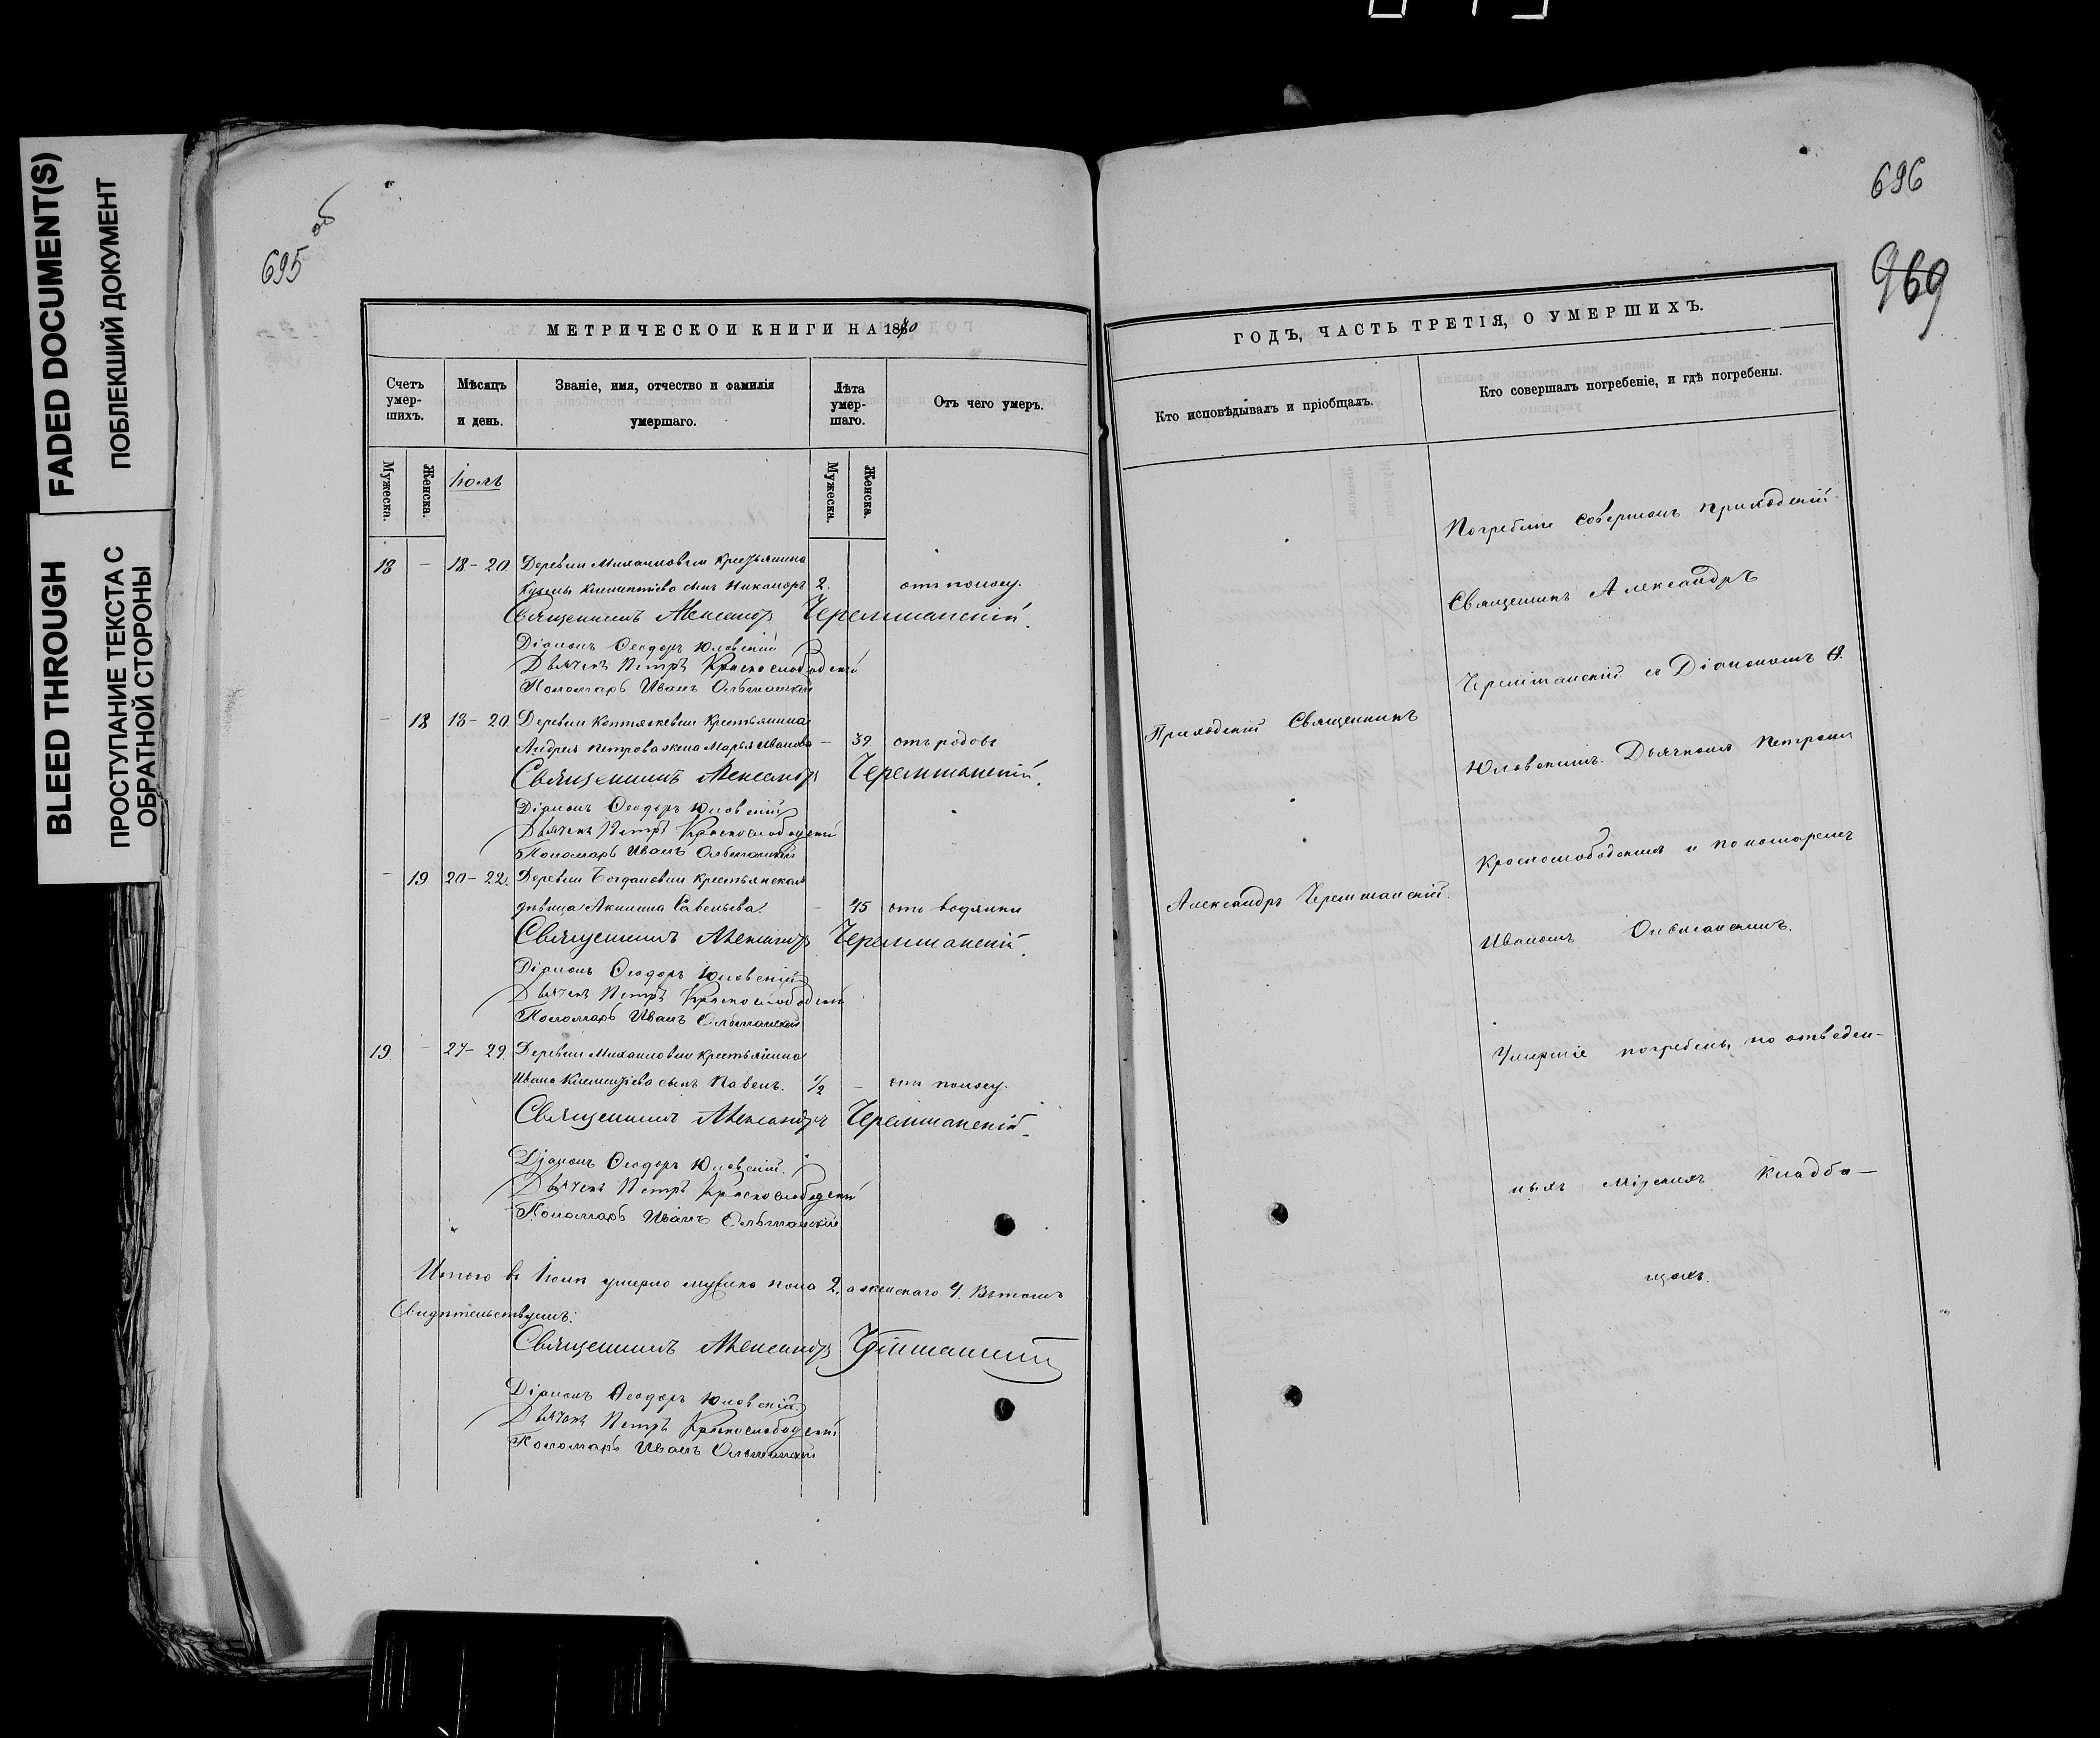 FADED DOCUMENT(S)
ПОБЛЕКШИЙ ДОКУМЕНТ
BLEED THROUGH
ПРОСТУПАНИЕ ТЕКСТА С
ОБРАТНОЙ СТОРОНЫ
695 об
МЕТРИЧЕСКОЙ КНИГИ НА 1870
Счетъ умер-шихъ.
Мѣсяцъ и день.
Званіе, имя, отчество и фамилія умершаго.
Лѣта умер-шаго.
Отъ чего умеръ.
Мужеска.
Женска.
Іюль
Мужеска.
Женска.
18 – 18–20 Деревни Михайловки Крестьянина
Кузьмы Климентіева сынъ Никаноръ 2. отъ поносу.
Священникъ Александръ Черемшанскій.
Діаконъ Ѳеодоръ Юловскій
Дьячекъ Петръ Краснослободскій
Пономарь Иванъ Ольшанскій
– 18 18–20 Деревни Крестьянина
Андрея Петрова жена Марья Иванова – 39. отъ родовъ
Священникъ Александръ Черемшанскій.
Діаконъ Ѳеодоръ Юловскій
Дьячекъ Петръ Краснослободскій
Пономарь Иванъ Ольшанскій
– 19 20–22. Деревни Богдановки Крестьянская
дѣвица Акилина Савельева. – 45 отъ водянки
Священникъ Александръ Черемшанскій.
Діаконъ Ѳеодоръ Юловскій
Дьячекъ Петръ Краснослободскій
Пономарь Иванъ Ольшанскій
19 – 27–29. Деревни Михайловки Крестьянина
Ивана Климентіева сынъ Павелъ. 1/2 – отъ поносу.
Священникъ Александръ Черемшанскій.
Діаконъ Ѳеодоръ Юловскій.
Дьячекъ Петръ Краснослободскій
Пономарь Иванъ Ольшанскій
Итого въ Іюлѣ умерло мужеска пола 2, а женскаго 4. Въ томъ
Свидѣтельствуемъ:
Священникъ Александръ Черемшанскій
Діаконъ Ѳеодоръ Юловскій.
Дьячекъ Петръ Краснослободскій
Пономарь Иванъ Ольшанскій
696
969
ГОДЪ, ЧАСТЬ ТРЕТІЯ, О УМЕРШИХЪ.
Кто исповѣдывалъ и пріобщалъ.
Кто совершалъ погребеніе, и гдѣ погребены.
Приходскій Священникъ
Александръ Черемшанскій.
Погребеніе совершалъ приходскій
Священникъ Александръ
Черемшанскій съ Діакономъ Ѳ.
Юловскимъ. Дьячкомъ Петромъ
Краснослободскимъ и пономаремъ
Иваномъ Ольшанскимъ.
Умершіе погребены на отведен-
ныхъ мірскихъ кладби-
щахъ.